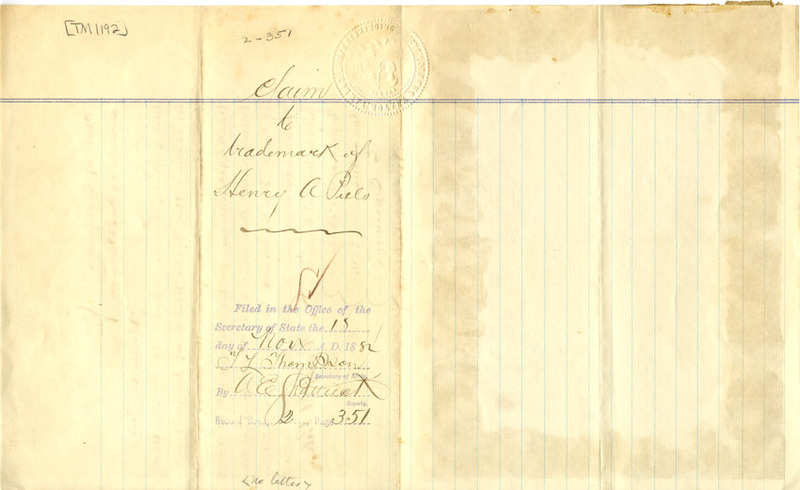 [TM1192]
2-351
Claim
to
trademark of
Henry A Piels
Filed in the Office of the
Secretary of State the 18
day of Nov A. D. 188
T L Thompson
Secretary of State
By A E
Deputy.
Record Book 2 Page 351
<no letter>